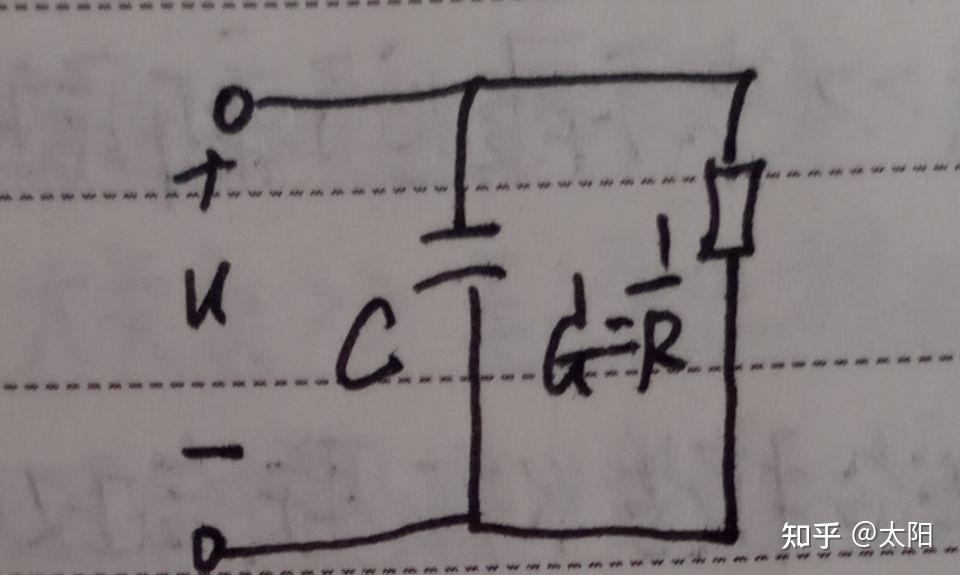 +
u
C
G=1/R
-
知乎 @太阳